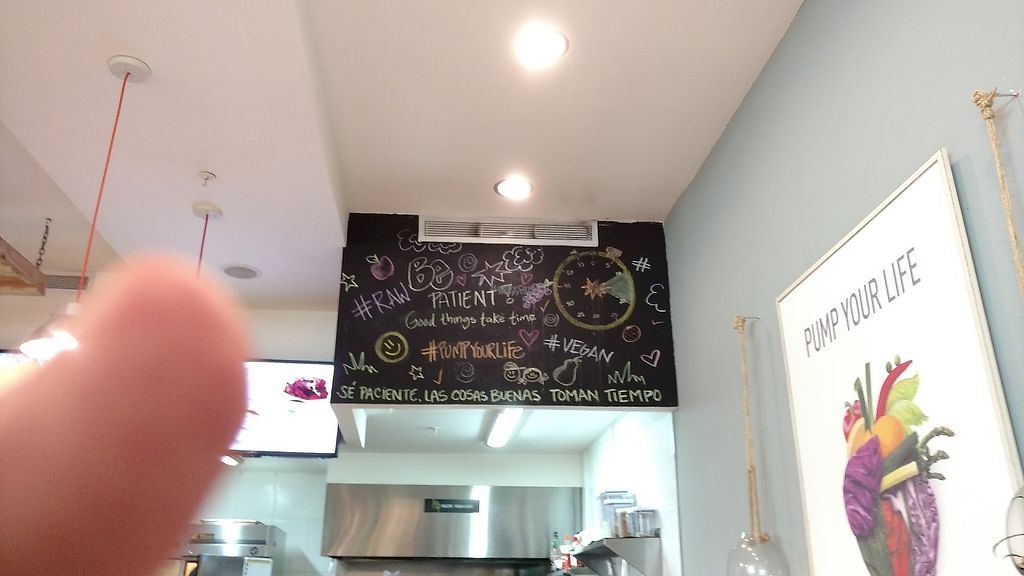 BE
#RAW
PATIENT
#
Good things take time
#PUMPYOURLIFE
#VEGAN
SÉ PACIENTE, LAS COSAS BUENAS TOMAN TIEMPO
PUMP YOUR LIFE